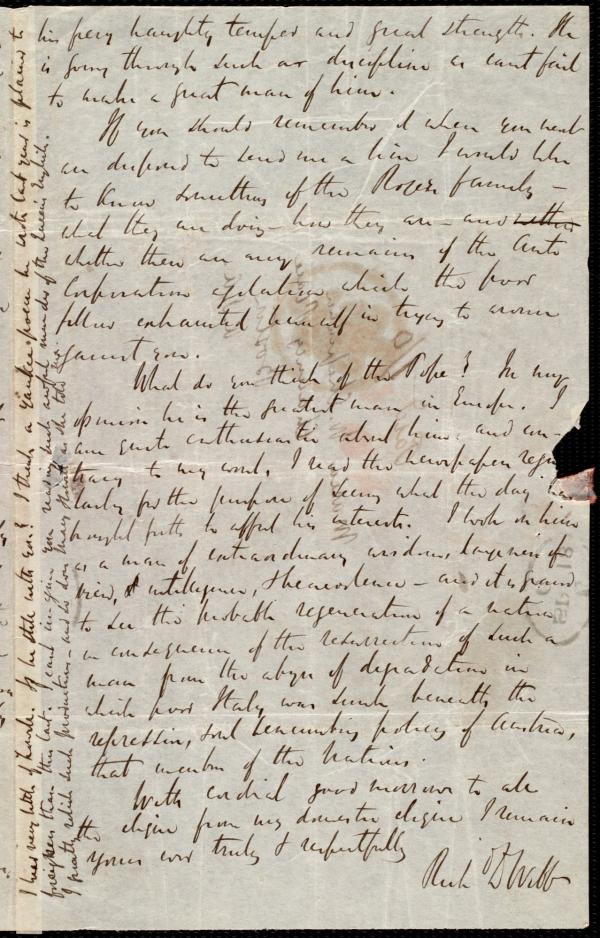 his fiery haughty temper and great strength. He
is going through such a discipline as cant fail
to make a great man of him.
If you should remember it when you next
are disposed to send me a line I would like
to know something of the Rogers family –
what they are doing – how they are – and
whether there are any remains of the Anti
Corporation agitation which the poor
fellow exhausted himself in trying to arouse
against you.
What do you think of the Pope? In my
opinion he is the greatest man in Europe. I
am quite enthusiastic about him, and con-
trary to my wont, I read the newspapers regu
larly for the purpose of seeing what the day has
brought forth to affect his interests. I look on him
as a man of extraordinary wisdom, largeness of
view, intelligence, & benevolence – and it is grand
to see the probable regeneration of a nation
in consequence of the resurrection of such a
man from the abyss of degradation in
which poor Italy was sunk beneath the
repressing, soul benumbing policy of Austria,
that member of the Nations.
With cordial good morrows to all
the clique from my domestic clique I remain
yours ever truly & respectfully
Rich D Webb
I hear very little of him. Is he still with you? I think a Yankee poem he wrote last year is plainer to
foreigners than this last. I cant imagine you making such awful murder of the Queen's English.